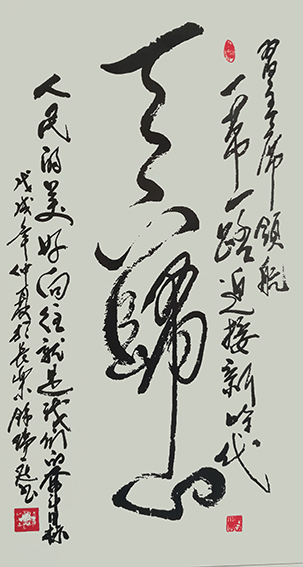 習主席领航
一带一路迎接新时代
天下歸心
人民的美好向往就是我们的奋斗目标
戊戌年仲夏於長樂